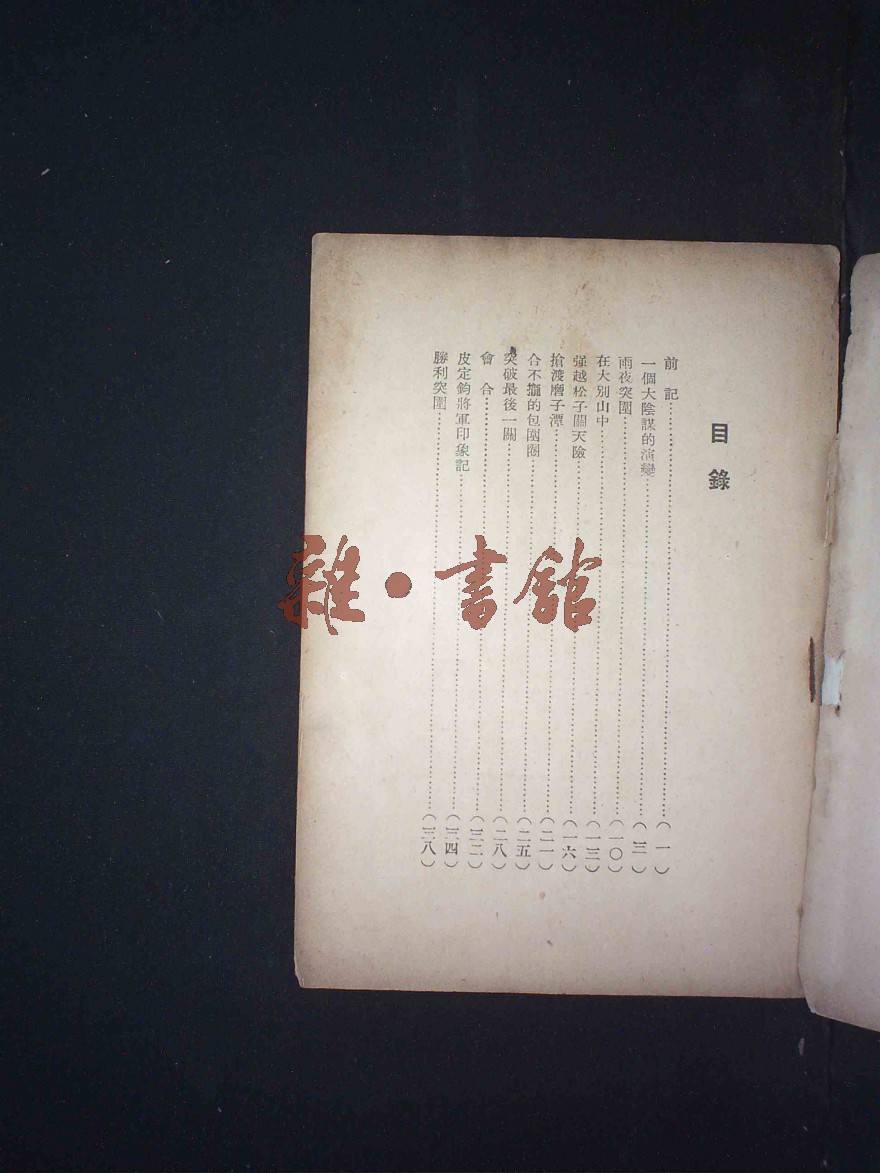 目錄
前記……(一)
一個大陰謀的演變……(三)
雨夜突圍……(一〇)
在大別山中……(一三)
强越松子關天險……(一六)
搶渡磨子潭……(二一)
合不攏的包圍圈……(二五)
突破最後一關……(二八)
會合……(三二)
皮定鈞將軍印象記……(三四)
勝利突圍……(三八)
雜·書舘